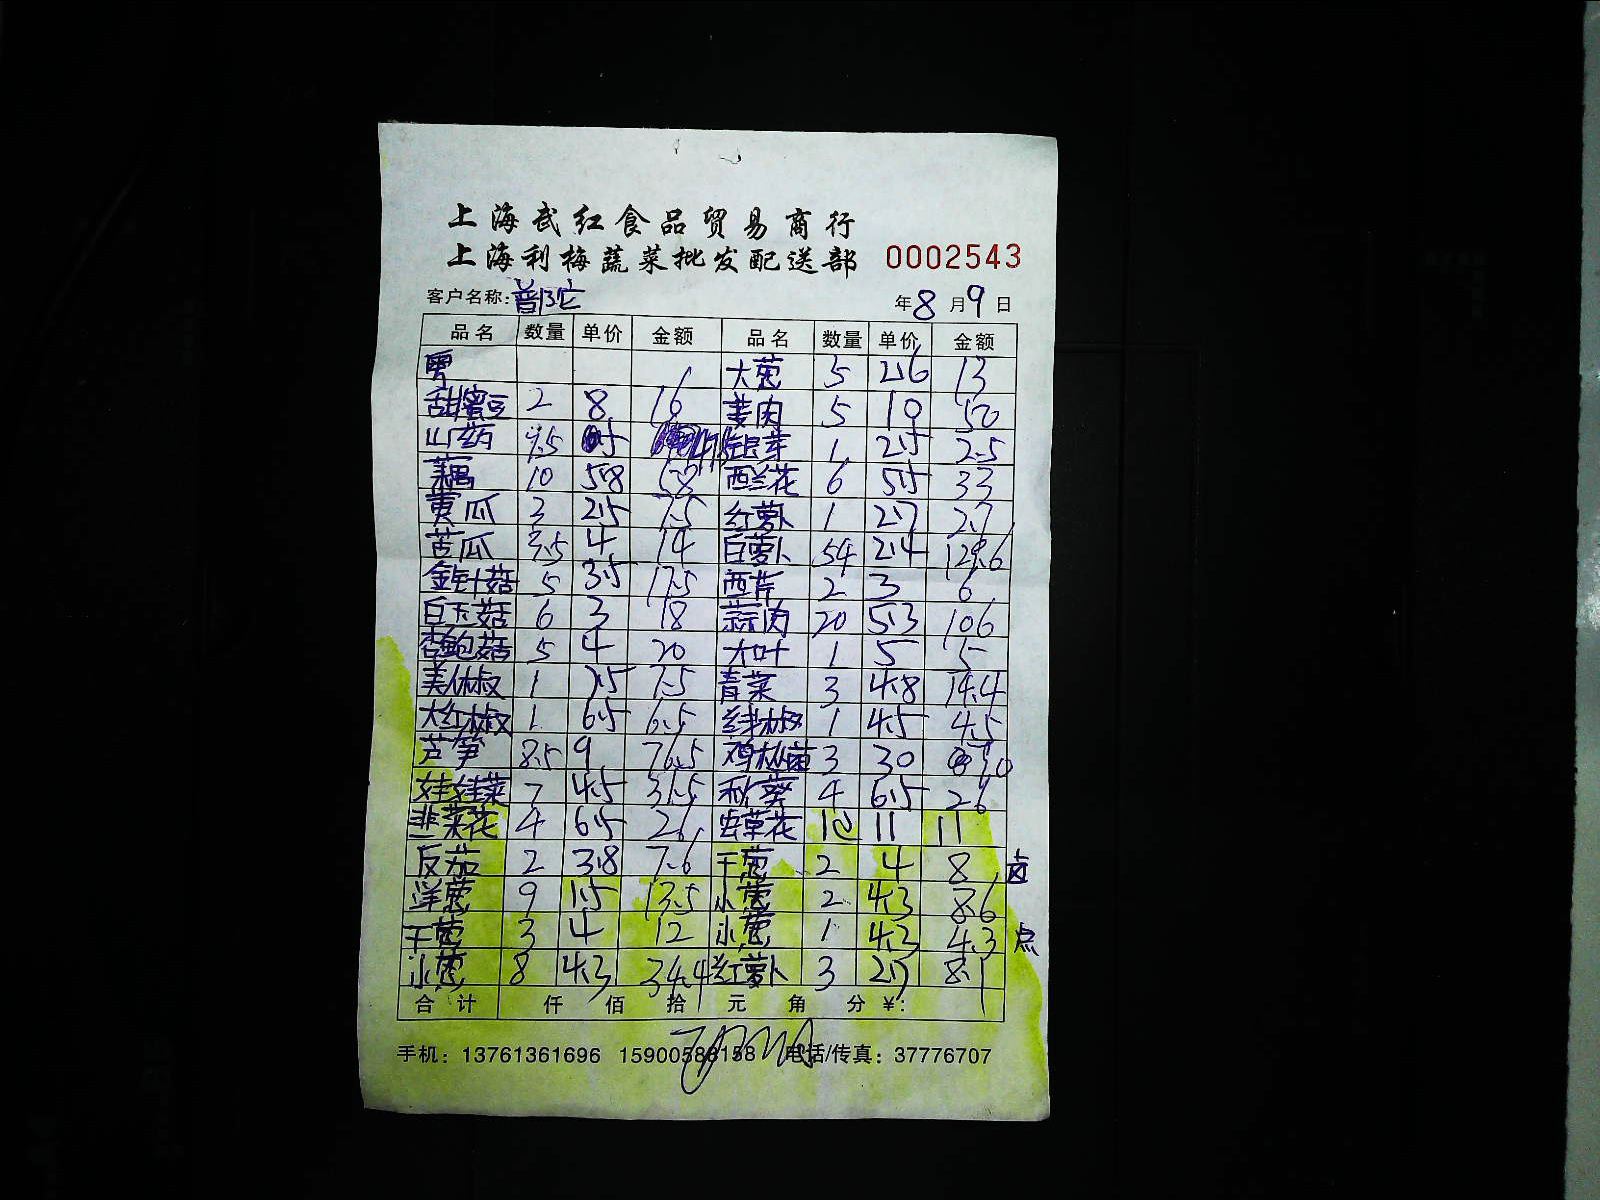 上海武红食品贸易商行
上海利梅蔬菜批发配送部 0002543
客户名称: 普陀 年8月9日
品名 数量 单价 金额 品名 数量 单价 金额
大葱 5 2.6 13
甜蜜豆 2 8 16 姜肉 5 10 50
山药 9.5 银芽 1 2.5 2.5
藕 10 5.8 58 西兰花 6 5.5 33
黄瓜 3 2.5 7.5 红萝卜 1 2.7 2.7
苦瓜 3.5 4 14 白萝卜 54 2.4 129.6
金针菇 5 3.5 17.5 西芹 2 3 6
白玉菇 6 3 18 蒜肉 20 5.3 106
杏鲍菇 5 4 20 大叶 1 5 5
美休椒 1 7.5 7.5 青菜 3 4.8 14.4
大红椒 1 6.5 6.5 线椒 1 4.5 4.5
芦笋 8.5 9 76.5 鸡枞菌 3 30
娃娃菜 7 4.5 31.5 秋葵 4 6.5 26
韭菜花 4 6.5 26 虫草花 11 11
反茄 2 3.8 7.6 干葱 2 4 8 卤
洋葱 9 1.5 13.5 小葱 2 4.3 8.6
干葱 3 4 12 小葱 1 4.3 4.3 点
小葱 8 4.3 34.4 红萝卜 3 2.7 8.1
合计 仟 佰 拾 元 角 分 ¥:
手机: 13761361696 15900586158 电话/传真: 37776707